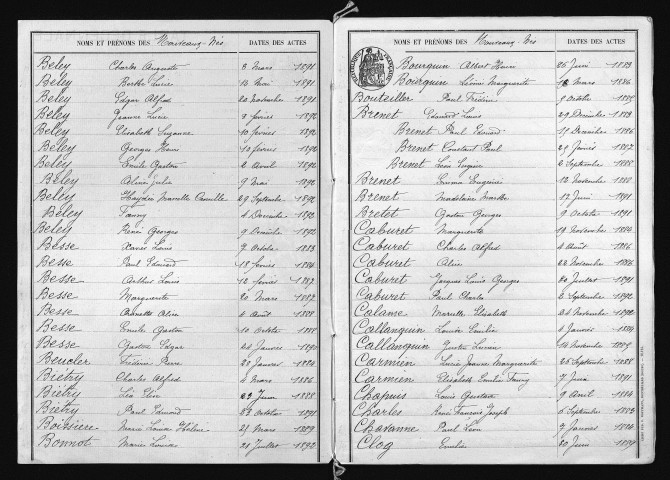 NOMS ET PRÉNOMS DES Nouveaux-Nés DATES DES ACTES
Beley Charles Auguste 8 Mars 1891
Beley Berthe Lucie 14 Mai 1891
Beley Edgar Alfred 20 Novembre 1891
Beley Jeanne Lucie 8 février 1892
Beley Elisabeth Suzanne 10 février 1892
Beley Georges Henri 10 février 1892
Beley Emile Gaston 2 Avril 1892
Beley Julia 9 Mai 1892
Beley Marcelle Camille 29 Septembre 1892
Beley Fanny 4 Décembre 1892
Beley René Georges 9 Décembre 1892
Besse Louis 7 Octobre 1883
Besse Paul Edouard 18 février 1886
Besse Arthur Louis 12 février 1887
Besse Marguerite 20 Mars 1887
Besse Alice 4 Août 1888
Besse Emile Gaston 10 Octobre 1888
Besse Gaston Edgar 24 Janvier 1890
Beucler Frédéric Pierre 20 Janvier 1884
Biétry Charles Alfred 4 Mars 1886
Biétry Léa Elise 23 Juin 1888
Biétry Paul Edmond 22 Octobre 1891
Boissiere Marie Louise Hélène 21 Mars 1889
Bonnot Marie Louise 21 Juillet 1892
NOMS ET PRÉNOMS DES Nouveaux-Nés DATES DES ACTES
Bourquin Albert Henri 26 Juin 1883
Bourquin Léonie Marguerite 18 Mars 1886
Bouteiller Paul Frédéric 9 Octobre 1885
Brenet Edouard Louis 29 Décembre 1883
Brenet Paul Edouard 19 Décembre 1886
Brenet Constant Paul 29 Janvier 1887
Brenet Léon Eugène 2 Septembre 1888
Brenet Emma Eugénie 12 Novembre 1888
Brenet Madeleine Marthe 12 Juin 1891
Bretet Gaston Georges 9 Octobre 1891
Caburet Marguerite 19 Novembre 1884
Caburet Charles Alfred 4 Août 1886
Caburet Alice 22 Novembre 1886
Caburet Jacques Louis Georges 20 Juillet 1891
Caburet Paul Charles 6 Septembre 1892
Calame Marcelle Elisabeth 24 Novembre 1892
Callanquin Louise Emilie 4 Janvier 1884
Callanquin Gustave Lucien 14 Novembre
Carmien Lucie Jeanne Marguerite 25 Septembre 1888
Carmien Elisabeth Emilie Fanny 7 Juin 1891
Chapuis Louis Gustave 9 Avril 1884
Charles René François Joseph 6 Septembre 1883
Chavanne Paul Léon 7 Janvier 1884
Clog Emilie 20 Juin